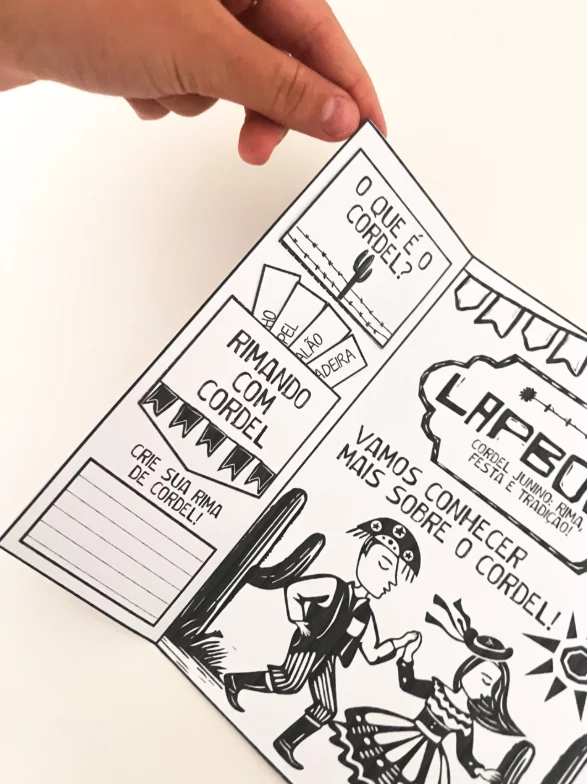 O QUE É O
CORDEL?
RIMANDO
COM
CORDEL
CRIE SUA RIMA
DE CORDEL!
LAPBO
CORDEL JUNINO: RIMA,
FESTA E TRADIÇÃO!
VAMOS CONHECER
MAIS SOBRE O CORDEL!